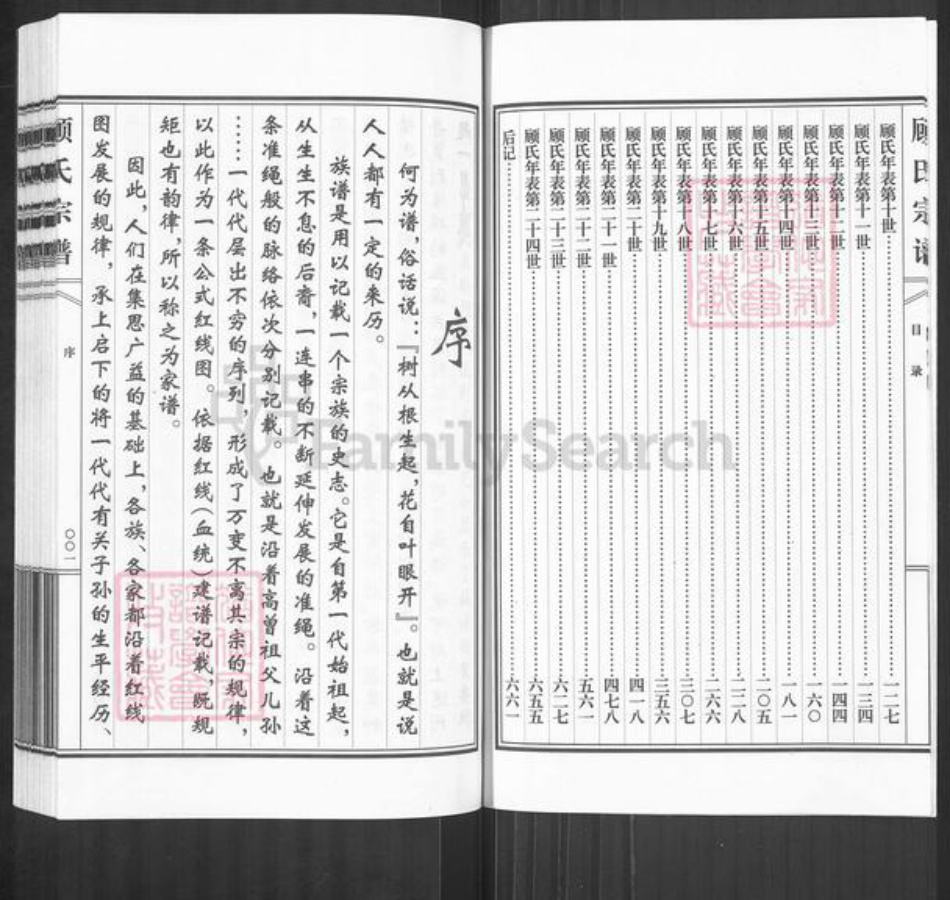 顾氏宗谱
目录
顾氏年表第十世……一二七
顾氏年表第十一世……一三四
顾氏年表第十二世……一四四
顾氏年表第十三世……一六〇
顾氏年表第十四世……一八一
顾氏年表第十五世……二〇五
顾氏年表第十六世……二二八
顾氏年表第十七世……二六六
顾氏年表第十八世……三〇七
顾氏年表第十九世……三五六
顾氏年表第二十世……四一八
顾氏年表第二十一世……四七八
顾氏年表第二十二世……五六一
顾氏年表第二十三世……六二七
顾氏年表第二十四世……六五五
后记……六六一
序
何为谱，俗话说：『树从根生起，花自叶眼开』。也就是说
人人都有一定的来历。
族谱是用以记载一个宗族的史志。它是自第一代始祖起，
从生生不息的后裔，一连串的不断延伸发展的准绳。沿着这
条准绳般的脉络依次分别记载。也就是沿着高曾祖父儿孙
……一代代层出不穷的序列，形成了万变不离其宗的规律，
以此作为一条公式红线图。依据红线（血统）建谱记载，既规
矩也有韵律，所以称之为家谱。
因此，人们在集思广益的基础上，各族、各家都沿着红线
图发展的规律，承上启下的将一代代有关子孙的生平经历、
顾氏宗谱
序
〇〇一
FamilySearch